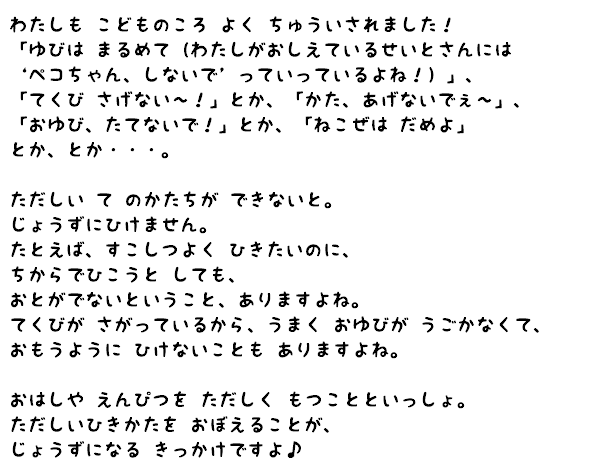 わたしも こどものころ よく ちゅういされました！
「ゆびは まるめて（わたしがおしえているせいとさんには
‘ペコちゃん、しないで’っていっているよね！）」、
「てくび さげない～！」とか、「かた、あげないでぇ～」、
「おゆび、たてないで！」とか、「ねこぜは だめよ」
とか、とか・・・。

ただしい て のかたちが できないと。
じょうずにひけません。
たとえば、すこしつよく ひきたいのに、
ちからでひこうと しても、
おとがでないということ、ありますよね。
てくびが さがっているから、うまく おゆびが うごかなくて、
おもうように ひけないことも ありますよね。

おはしや えんぴつを ただしく もつことといっしょ。
ただしいひきかたを おぼえることが、
じょうずになる きっかけですよ♪